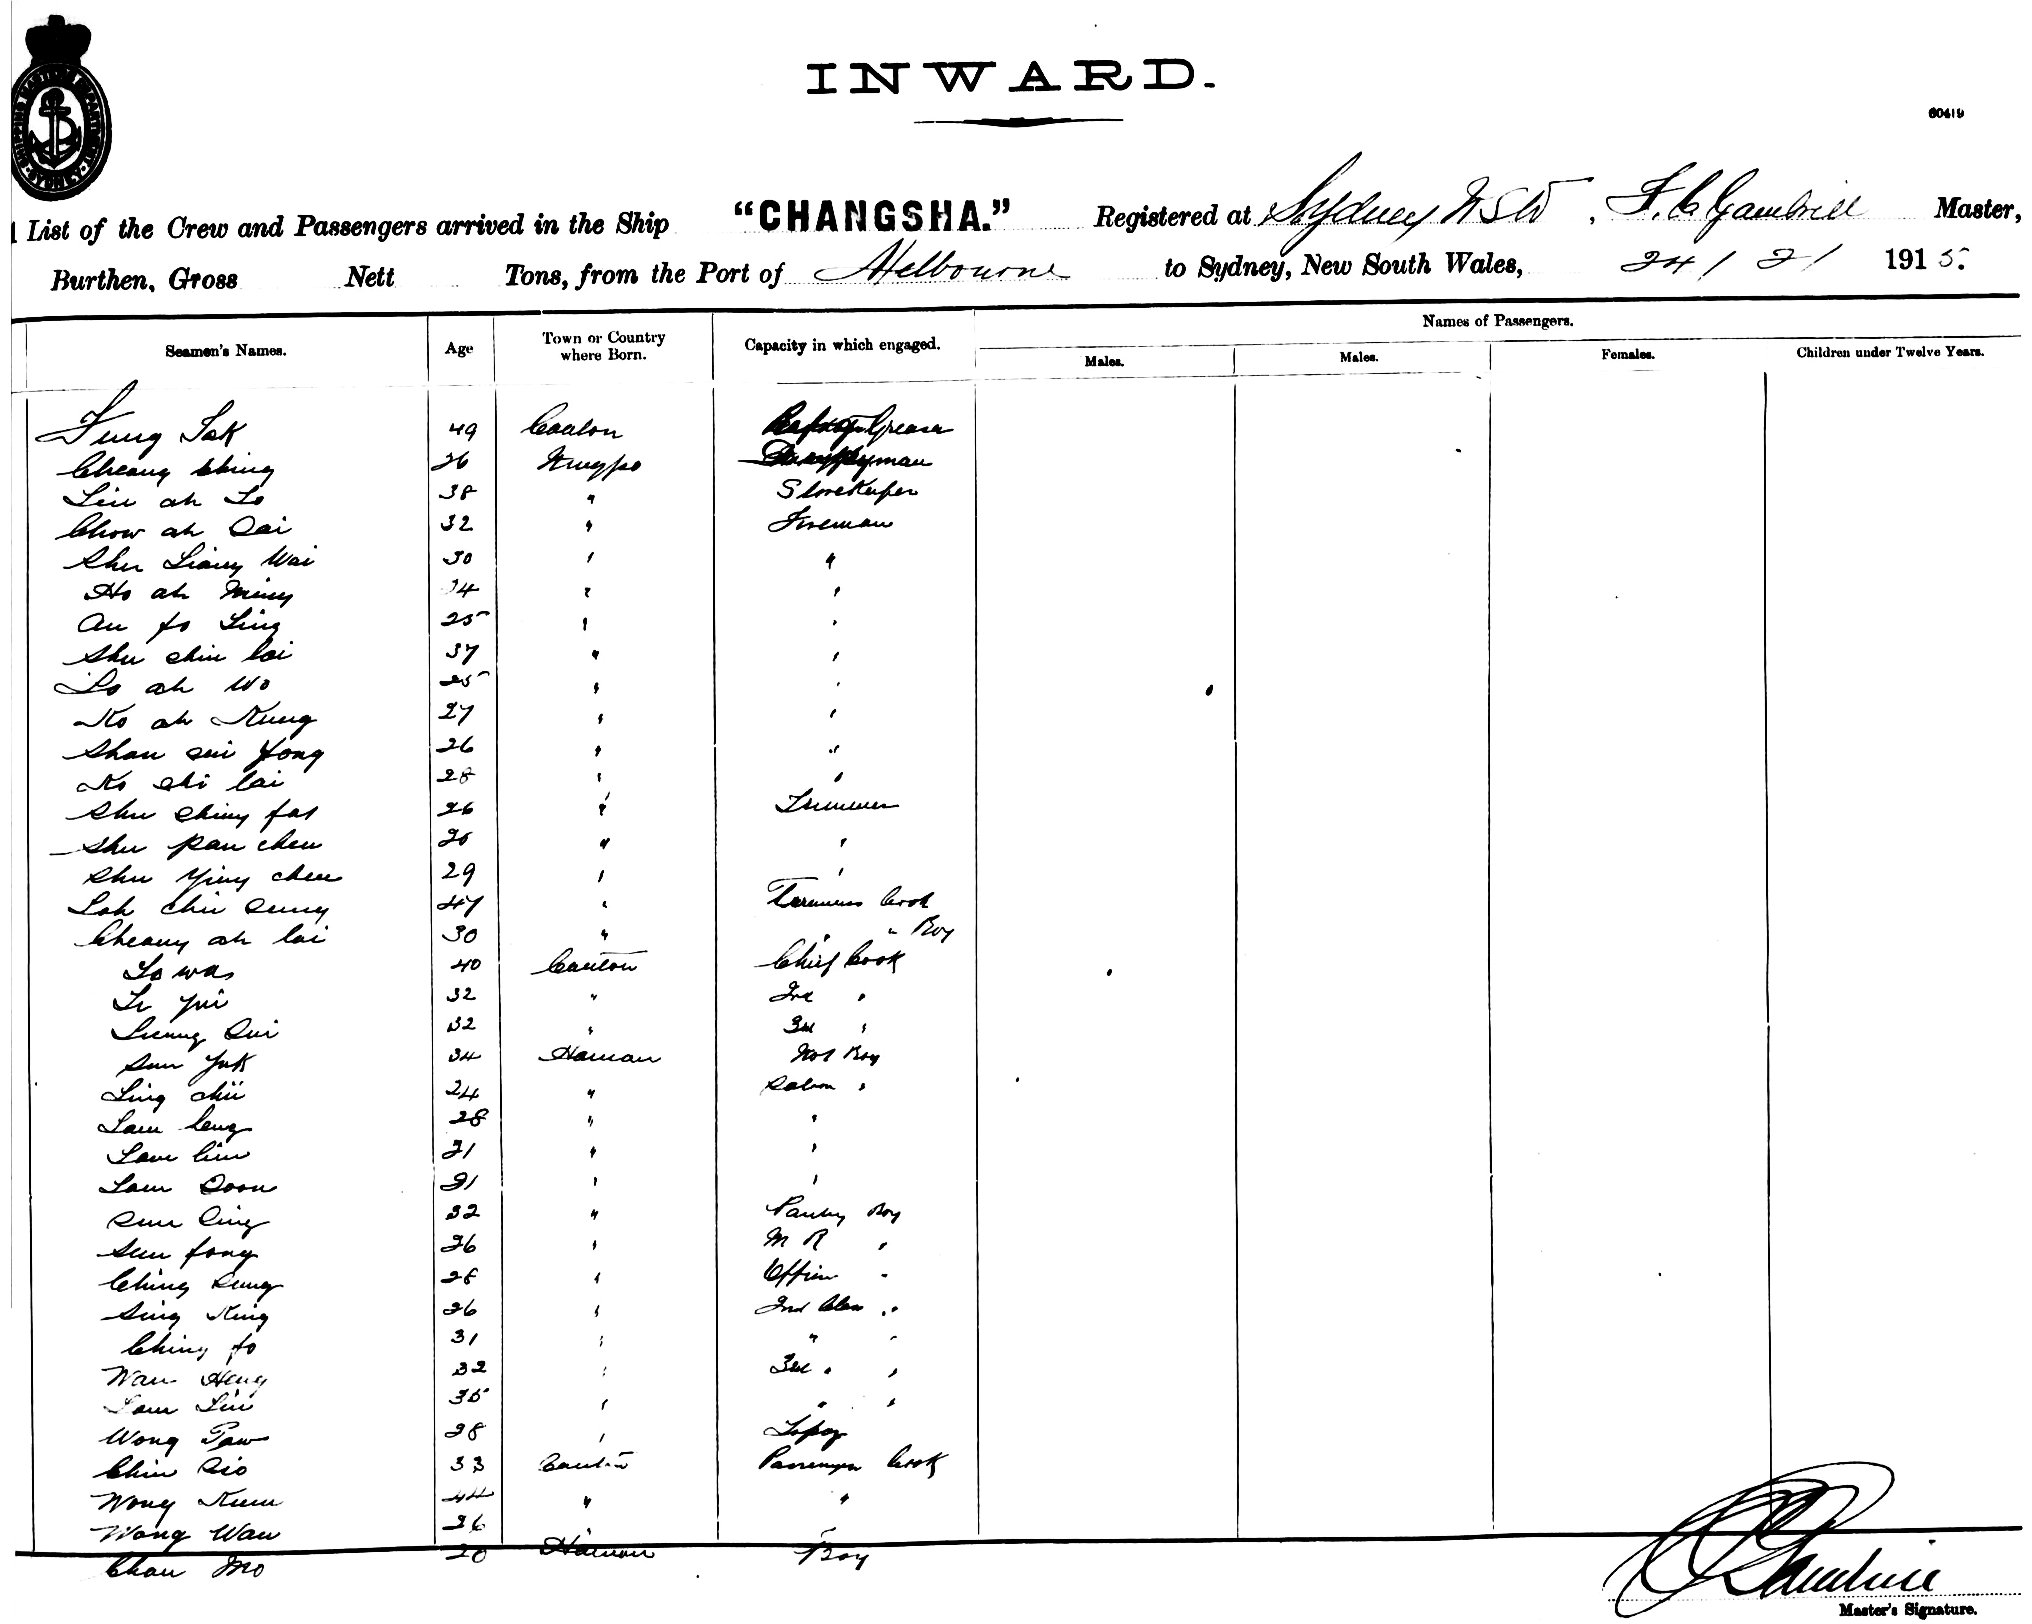 SHIPPING MASTER'S DEPARTMENT SYDNEY
INWARD.
60419
List of the Crew and Passengers arrived in the Ship "CHANGSHA." Registered at Sydney NSW, F. C. Gambrill Master,
Burthen, Gross Nett Tons, from the Port of Melbourne to Sydney, New South Wales, 24 / 2 / 1915.
Names of Passengers.
Seamen's Names. Age Town or Country where Born. Capacity in which engaged. Males. Males. Females. Children under Twelve Years.
Fung Sok 49 Canton Greaser
Cheang Ching 26 Ningpo man
Liu ah Lo 38 " Storekeeper
Chow ah Sai 32 " Fireman
Shu Liang Wai 30 " "
Ho ah Ming 34 " "
Au fo Ling 25 " "
Shu chin lai 37 " "
Lo ah Wo 25 " "
Ko ah Kung 27 " "
Shan sui Yong 26 " "
Ko shi lai 28 " "
Shu ching fat 26 " Trimmer
Shu pan chen " "
Shu Ying chen 29 " "
Loh chu Sung 47 " Firemens Cook
Cheang ah lai 30 " " " Boy
Lo was 40 Canton Chief Cook
Le Yui 32 " 2nd "
Leung Sui 32 " 3rd "
Sun Yuk 34 Hainan No1 Boy
Ling chii 24 " Saloon "
Lam Ceng 28 " "
Lam lim 21 " "
Lam Soon 21 " "
Sun Sing 32 " Pantry Boy
Sun fong 26 " M R "
Ching Sung 28 " Officers "
Sing King 26 " 2nd Class "
Ching fo 31 " " "
Wan Heng 32 " 3rd " "
Lam Lin 35 " " "
Wong Paw 28 " Topaz
Chin Sio 33 Canton Passenger Cook
Wong Kum 44 " "
Wong Wan 26
Chan Mo 20 Hainan Boy
Master's Signature.